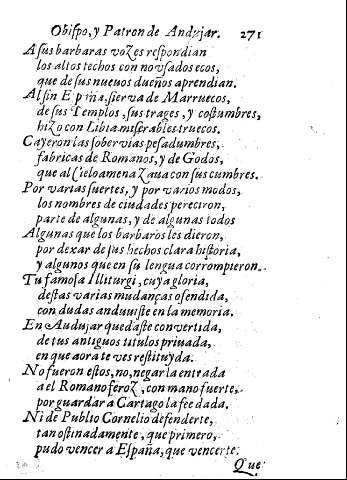 Obispo, y Patron de Andujar. 271
A sus barbaras vozes respondian
los altos techos con no vsados ecos,
que de sus nueuos dueños aprendian.
Al fin España, sierva de Marruecos,
de sus Templos, sus trages, y costumbres,
hizo con Libia miserables truecos.
Cayeron las sobervias pesadumbres,
fabricas de Romanos, y de Godos,
que al Cielo amenazaua con sus cumbres.
Por varias suertes, y por varios modos,
los nombres de ciudades perecieron,
parte de algunas, y de algunas todos
Algunas que los barbaros les dieron,
por dexar de sus hechos clara historia,
y algunos que en su lengua corrompieron.
Tu famosa Illiturgi, cuya gloria,
destas varias mudanças ofendida,
con dudas anduuiste en la memoria.
En Andujar quedaste convertida,
de tus antiguos titulos priuada,
en que aora te ves restituyda.
No fueron estos, no, negar la entrada
a el Romano feroz, con mano fuerte,
por guardar a Cartago la fee dada.
Ni de Publio Cornelio defenderte,
tan ostinadamente, que primero,
pudo vencer a España, que vencerte.
Que